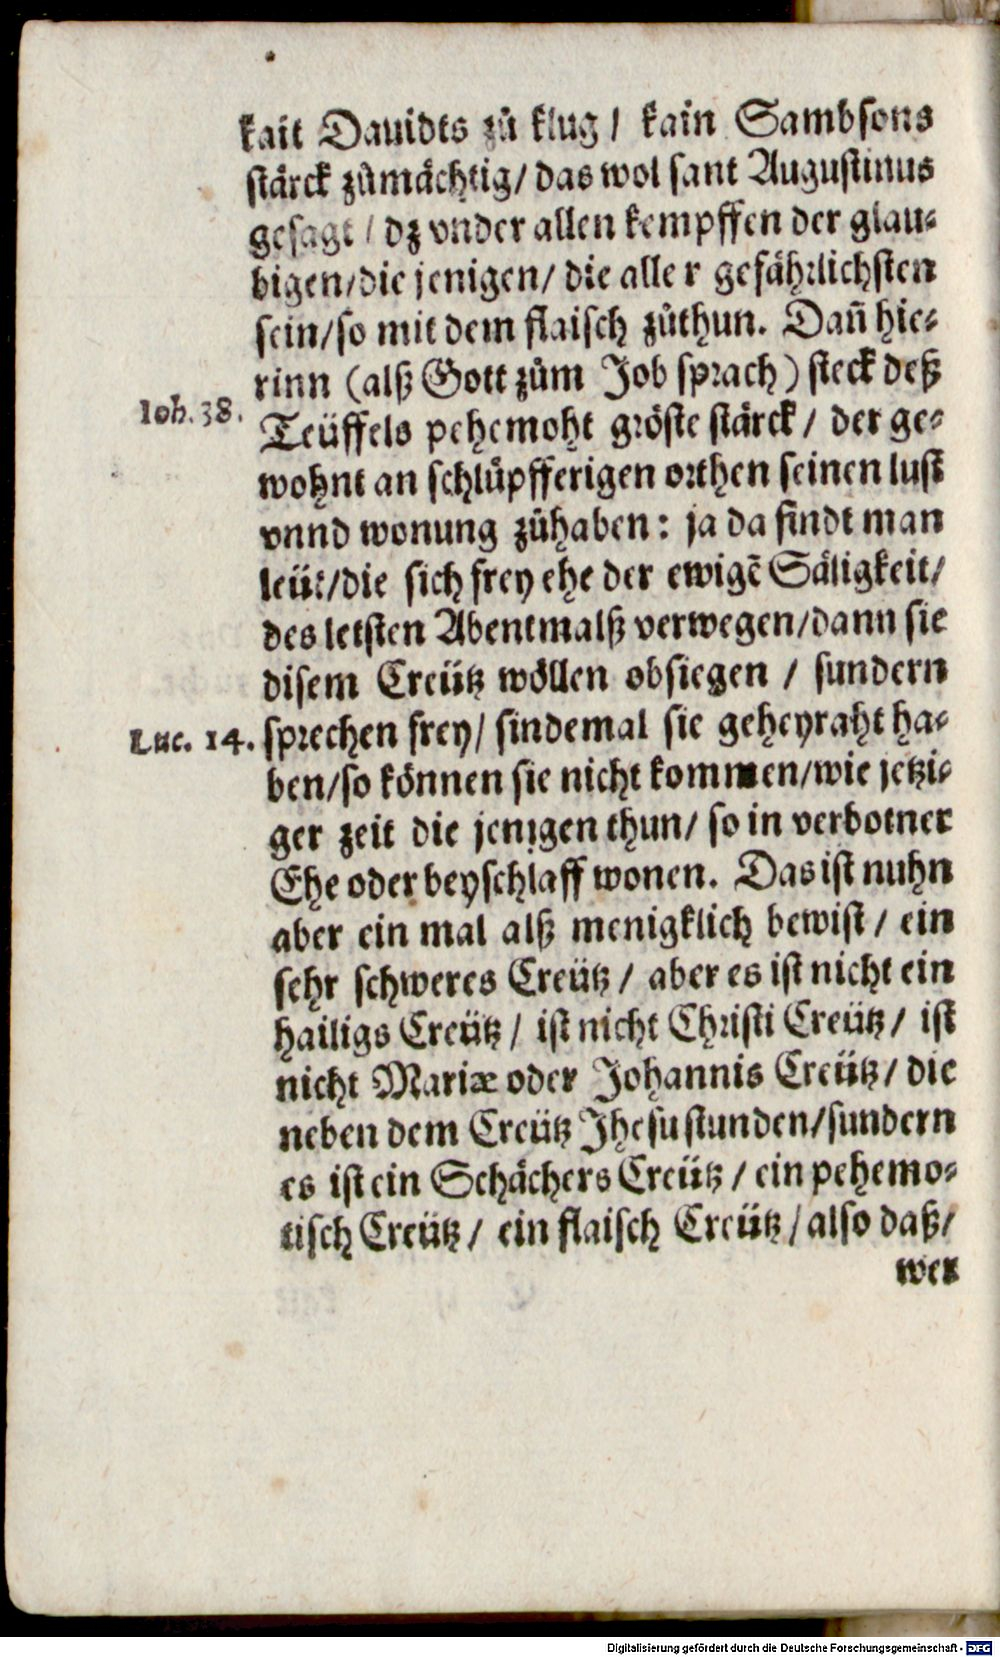 kait Dauidts zů klug / kain Sambsons
stärck zůmächtig / das wol sant Augustinus
gesagt / dz vnder allen kempffen der glau⸗
bigen / die jenigen / die alle r gefährlichsten
sein / so mit dem flaisch zůthun. Dañ hie⸗
rinn (alß Gott zům Job sprach) steck deß
Iob. 38.
Teüffels pehemoht gröste stärck / der ge⸗
wohnt an schlüpfferigen orthen seinen lust
vnnd wonung zůhaben : ja da findt man
leüt / die sich frey ehe der ewigẽ Säligkeit /
des letsten Abentmalß verwegen / dann sie
disem Creütz wöllen obsiegen / sundern
Luc. 14.
sprechen frey / sindemal sie geheyraht ha⸗
ben / so können sie nicht kommen / wie jetzi⸗
ger zeit die jenigen thun / so in verbotner
Ehe oder beyschlaff wonen. Das ist nuhn
aber ein mal alß menigklich bewist / ein
sehr schweres Creütz / aber es ist nicht ein
hailigs Creütz / ist nicht Christi Creütz / ist
nicht Mariæ oder Johannis Creütz / die
neben dem Creütz Jhesu stunden / sundern
es ist ein Schächers Creütz / ein pehemo⸗
tisch Creütz / ein flaisch Creütz / also daß /
wer
Digitalisierung gefördert durch die Deutsche Forschungsgemeinschaft - DFG